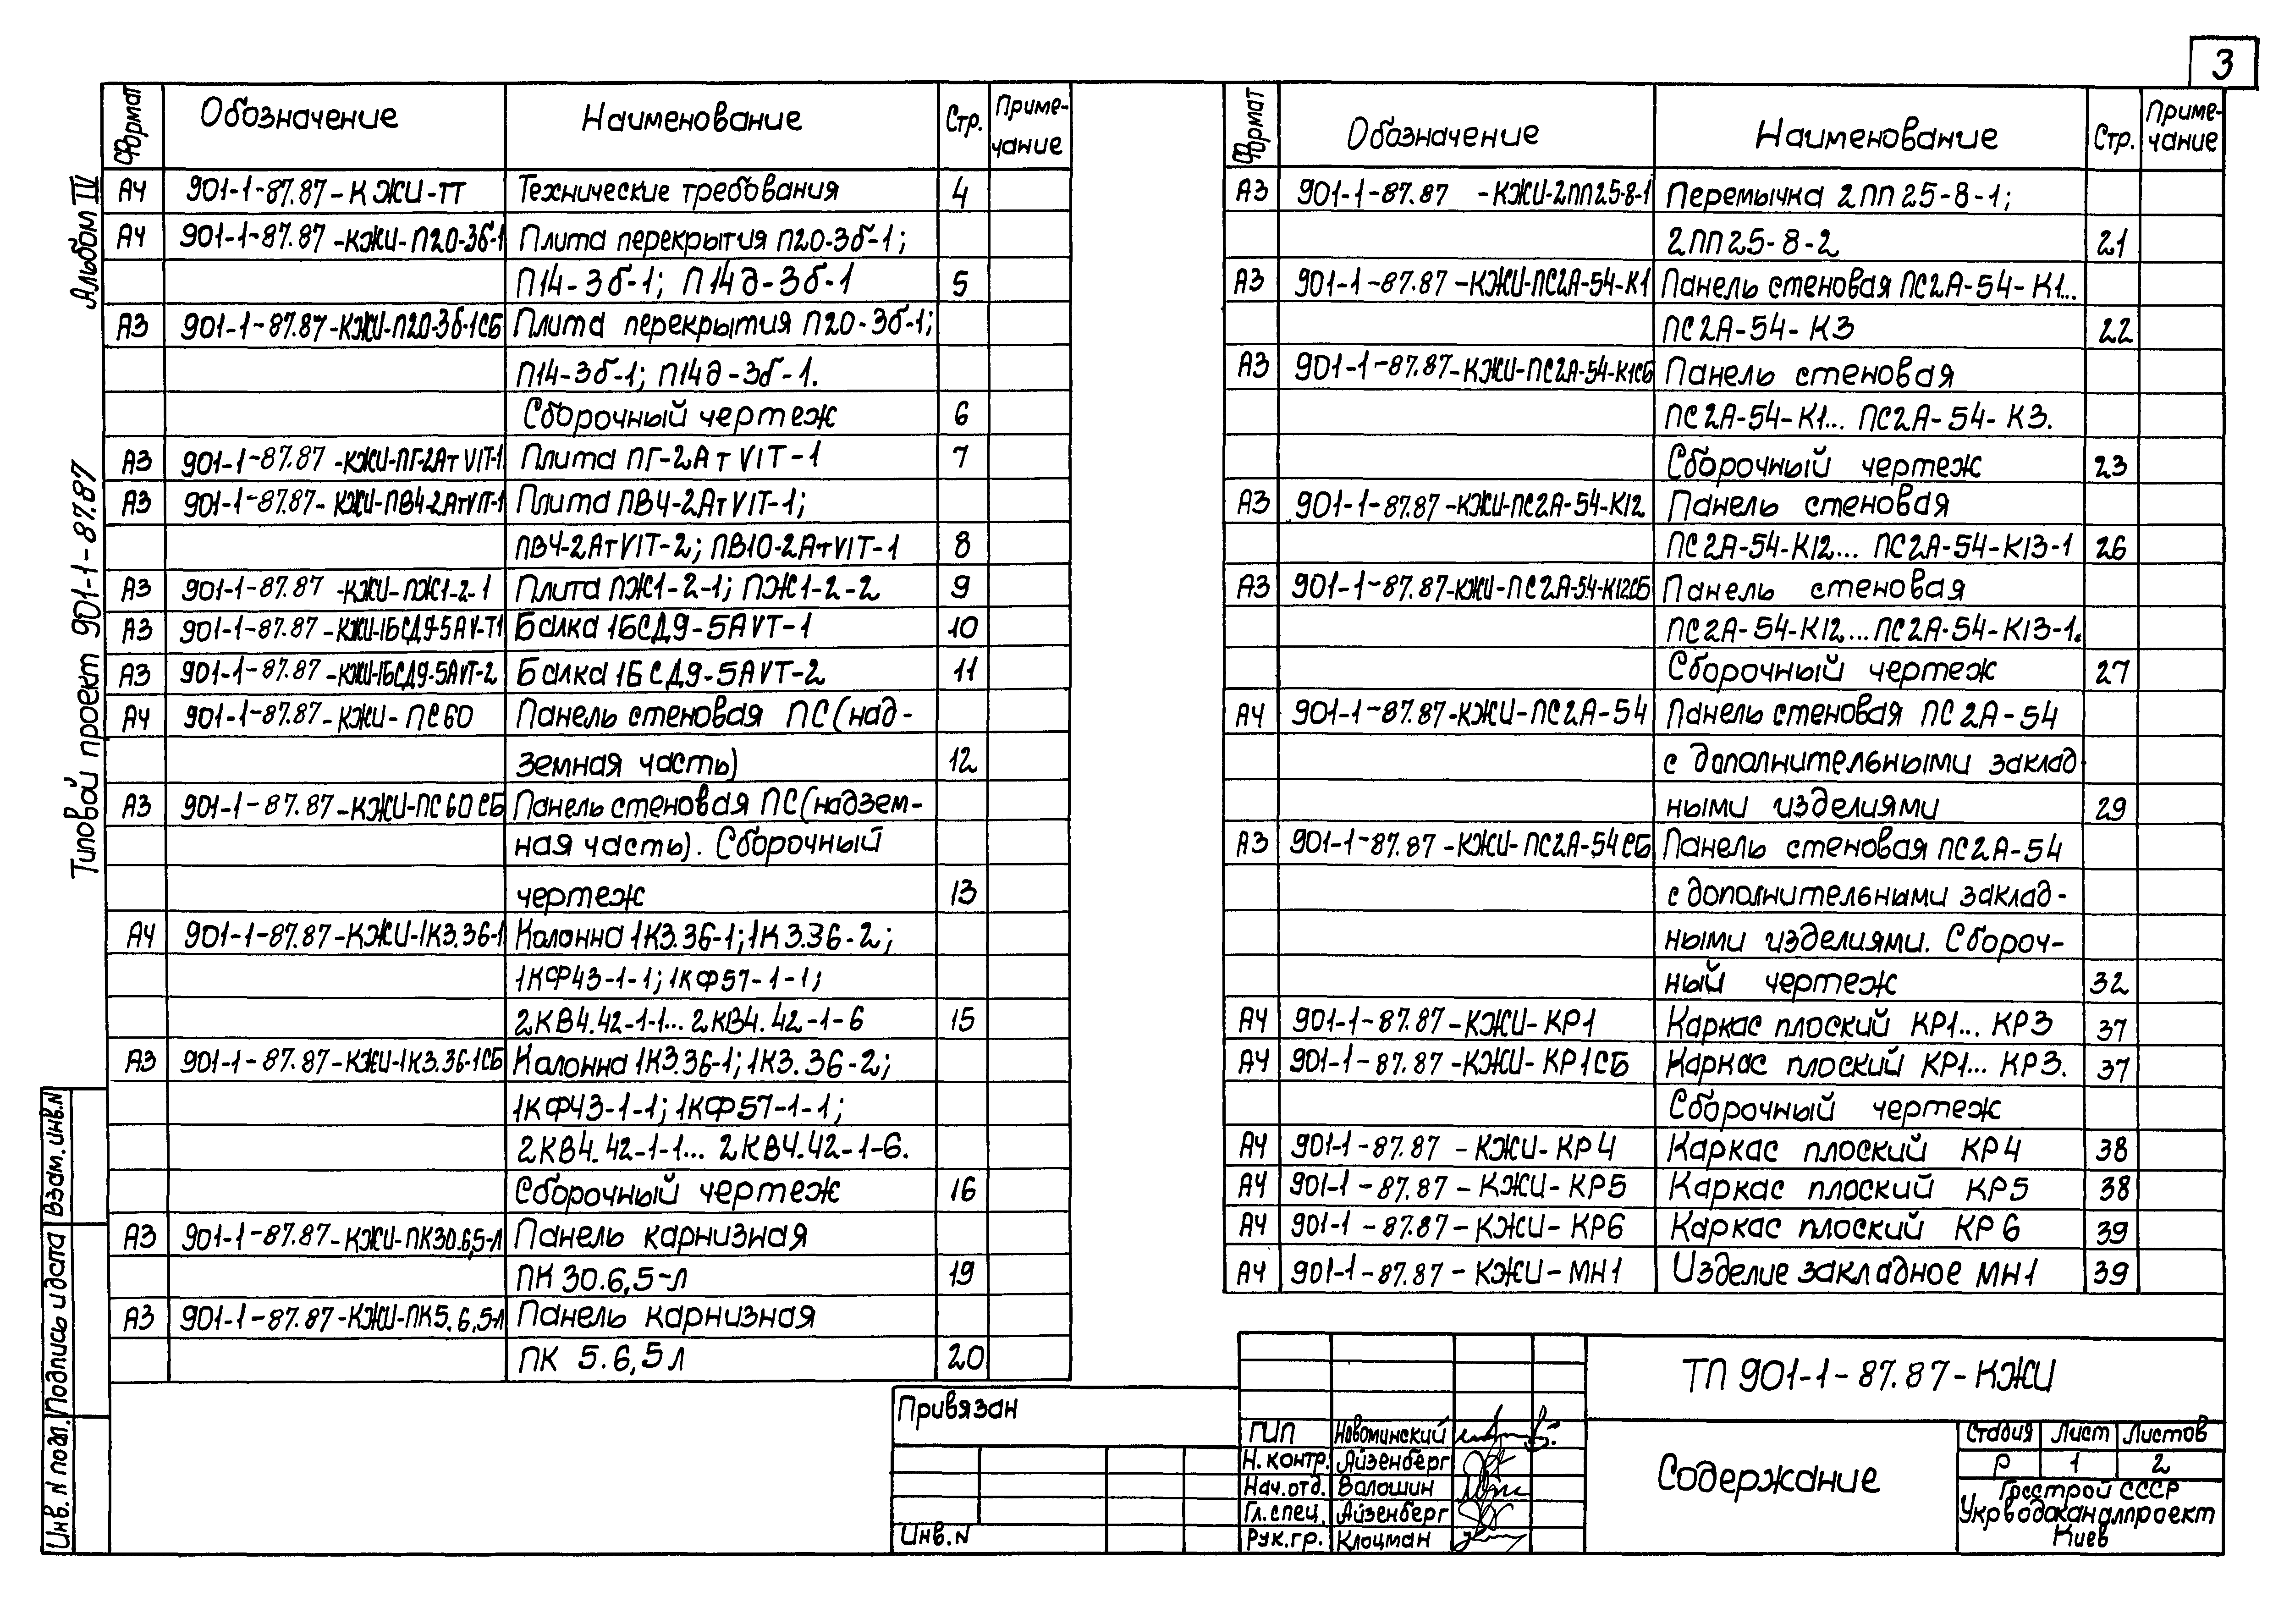 3
Альбом IV
Типовой проект 901-1-87.87
Формат Обозначение Наименование Стр. Приме-
чание
А4 901-1-87.87-КЖИ-ТТ Технические требования 4
А4 901-1-87.87-КЖИ-П20-3б-1 Плита перекрытия П20-3б-1;
П14-3б-1; П14д-3б-1 5
А3 901-1-87.87-КЖИ-П20-3б-1СБ Плита перекрытия П20-3б-1;
П14-3б-1; П14д-3б-1.
Сборочный чертеж 6
А3 901-1-87.87-КЖИ-ПГ-2АтVIТ-1 Плита ПГ-2АтVIТ-1 7
А3 901-1-87.87-КЖИ-ПВ4-2АтVIТ-1 Плита ПВ4-2АтVIТ-1;
ПВ4-2АтVIТ-2; ПВ10-2АтVIТ-1 8
А3 901-1-87.87-КЖИ-ПЖ1-2-1 Плита ПЖ1-2-1; ПЖ1-2-2 9
А3 901-1-87.87-КЖИ-1БСД9-5АV-Т1 Балка 1БСД9-5АVТ-1 10
А3 901-1-87.87-КЖИ-1БСД9-5АVТ-2 Балка 1БСД9-5АVТ-2 11
А4 901-1-87.87-КЖИ-ПС60 Панель стеновая ПС (над-
земная часть) 12
А3 901-1-87.87-КЖИ-ПС60СБ Панель стеновая ПС (надзем-
ная часть). Сборочный
чертеж 13
А4 901-1-87.87-КЖИ-1К3.36-1 Колонна 1К3.36-1; 1К3.36-2;
1КФ43-1-1; 1КФ57-1-1;
2КВ4.42-1-1... 2КВ4.42-1-6 15
А3 901-1-87.87-КЖИ-1К3.36-1СБ Колонна 1К3.36-1; 1К3.36-2;
1КФ43-1-1; 1КФ57-1-1;
2КВ4.42-1-1... 2КВ4.42-1-6.
Сборочный чертеж 16
А3 901-1-87.87-КЖИ-ПК30.6,5-л Панель карнизная
ПК 30.6,5-л 19
А3 901-1-87.87-КЖИ-ПК5.6,5-л Панель карнизная
ПК 5.6,5л 20
Формат Обозначение Наименование Стр. Приме-
чание
А3 901-1-87.87-КЖИ-2ПП25-8-1 Перемычка 2ПП25-8-1;
2ПП25-8-2 21
А3 901-1-87.87-КЖИ-ПС2А-54-К1 Панель стеновая ПС2А-54-К1...
ПС2А-54-К3 22
А3 901-1-87.87-КЖИ-ПС2А-54-К1СБ Панель стеновая
ПС2А-54-К1... ПС2А-54-К3.
Сборочный чертеж 23
А3 901-1-87.87-КЖИ-ПС2А-54-К12 Панель стеновая
ПС2А-54-К12... ПС2А-54-К13-1 26
А3 901-1-87.87-КЖИ-ПС2А-54-К12СБ Панель стеновая
ПС2А-54-К12...ПС2А-54-К13-1.
Сборочный чертеж 27
А4 901-1-87.87-КЖИ-ПС2А-54 Панель стеновая ПС2А-54
с дополнительными заклад-
ными изделиями 29
А3 901-1-87.87-КЖИ-ПС2А-54СБ Панель стеновая ПС2А-54
с дополнительными заклад-
ными изделиями. Сбороч-
ный чертеж 32
А4 901-1-87.87-КЖИ-КР1 Каркас плоский КР1... КР3 37
А4 901-1-87.87-КЖИ-КР1СБ Каркас плоский КР1... КР3. 37
Сборочный чертеж
А4 901-1-87.87-КЖИ-КР4 Каркас плоский КР4 38
А4 901-1-87.87-КЖИ-КР5 Каркас плоский КР5 38
А4 901-1-87.87-КЖИ-КР6 Каркас плоский КР6 39
А4 901-1-87.87-КЖИ-МН1 Изделие закладное МН1 39
Взам. инв.N
Подпись и дата
Инв. N подл.
Привязан
Инв. N
ГИП Новоминский
Н. контр. Айзенберг
Нач. отд. Волошин
Гл. спец. Айзенберг
Рук. гр. Клоцман
ТП 901-1-87.87-КЖИ
Содержание
Стадия Лист Листов
Р 1 2
Госстрой СССР
Укрводоканалпроект
Киев